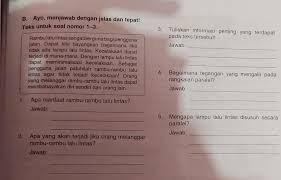 B. Ayo, menjawab dengan jelas dan tepat!
Teks untuk soal nomor 1–3.
Rambu lalu lintas sangat berguna bagi pengguna
jalan. Dapat kita bayangkan bagaimana jika
tidak ada rambu lalu lintas. Kecelakaan dapat
terjadi di mana-mana. Dengan rambu lalu lintas
dapat meminimalisasi kecelakaan. Setiap
pengguna jalan patuhilah rambu-rambu lalu
lintas agar tidak terjadi kecelakaan! Orang
yang melanggar rambu-rambu lalu lintas dapat
membahayakan diri sendiri dan orang lain.
1. Apa manfaat rambu-rambu lalu lintas?
Jawab:
2. Apa yang akan terjadi jika orang melanggar
rambu-rambu lalu lintas?
Jawab:
3. Tuliskan informasi penting yang terdapat
pada teks tersebut!
Jawab:
4. Bagaimana tegangan yang mengalir pada
rangkaian paralel?
Jawab:
5. Mengapa lampu lalu lintas disusun secara
paralel?
Jawab: